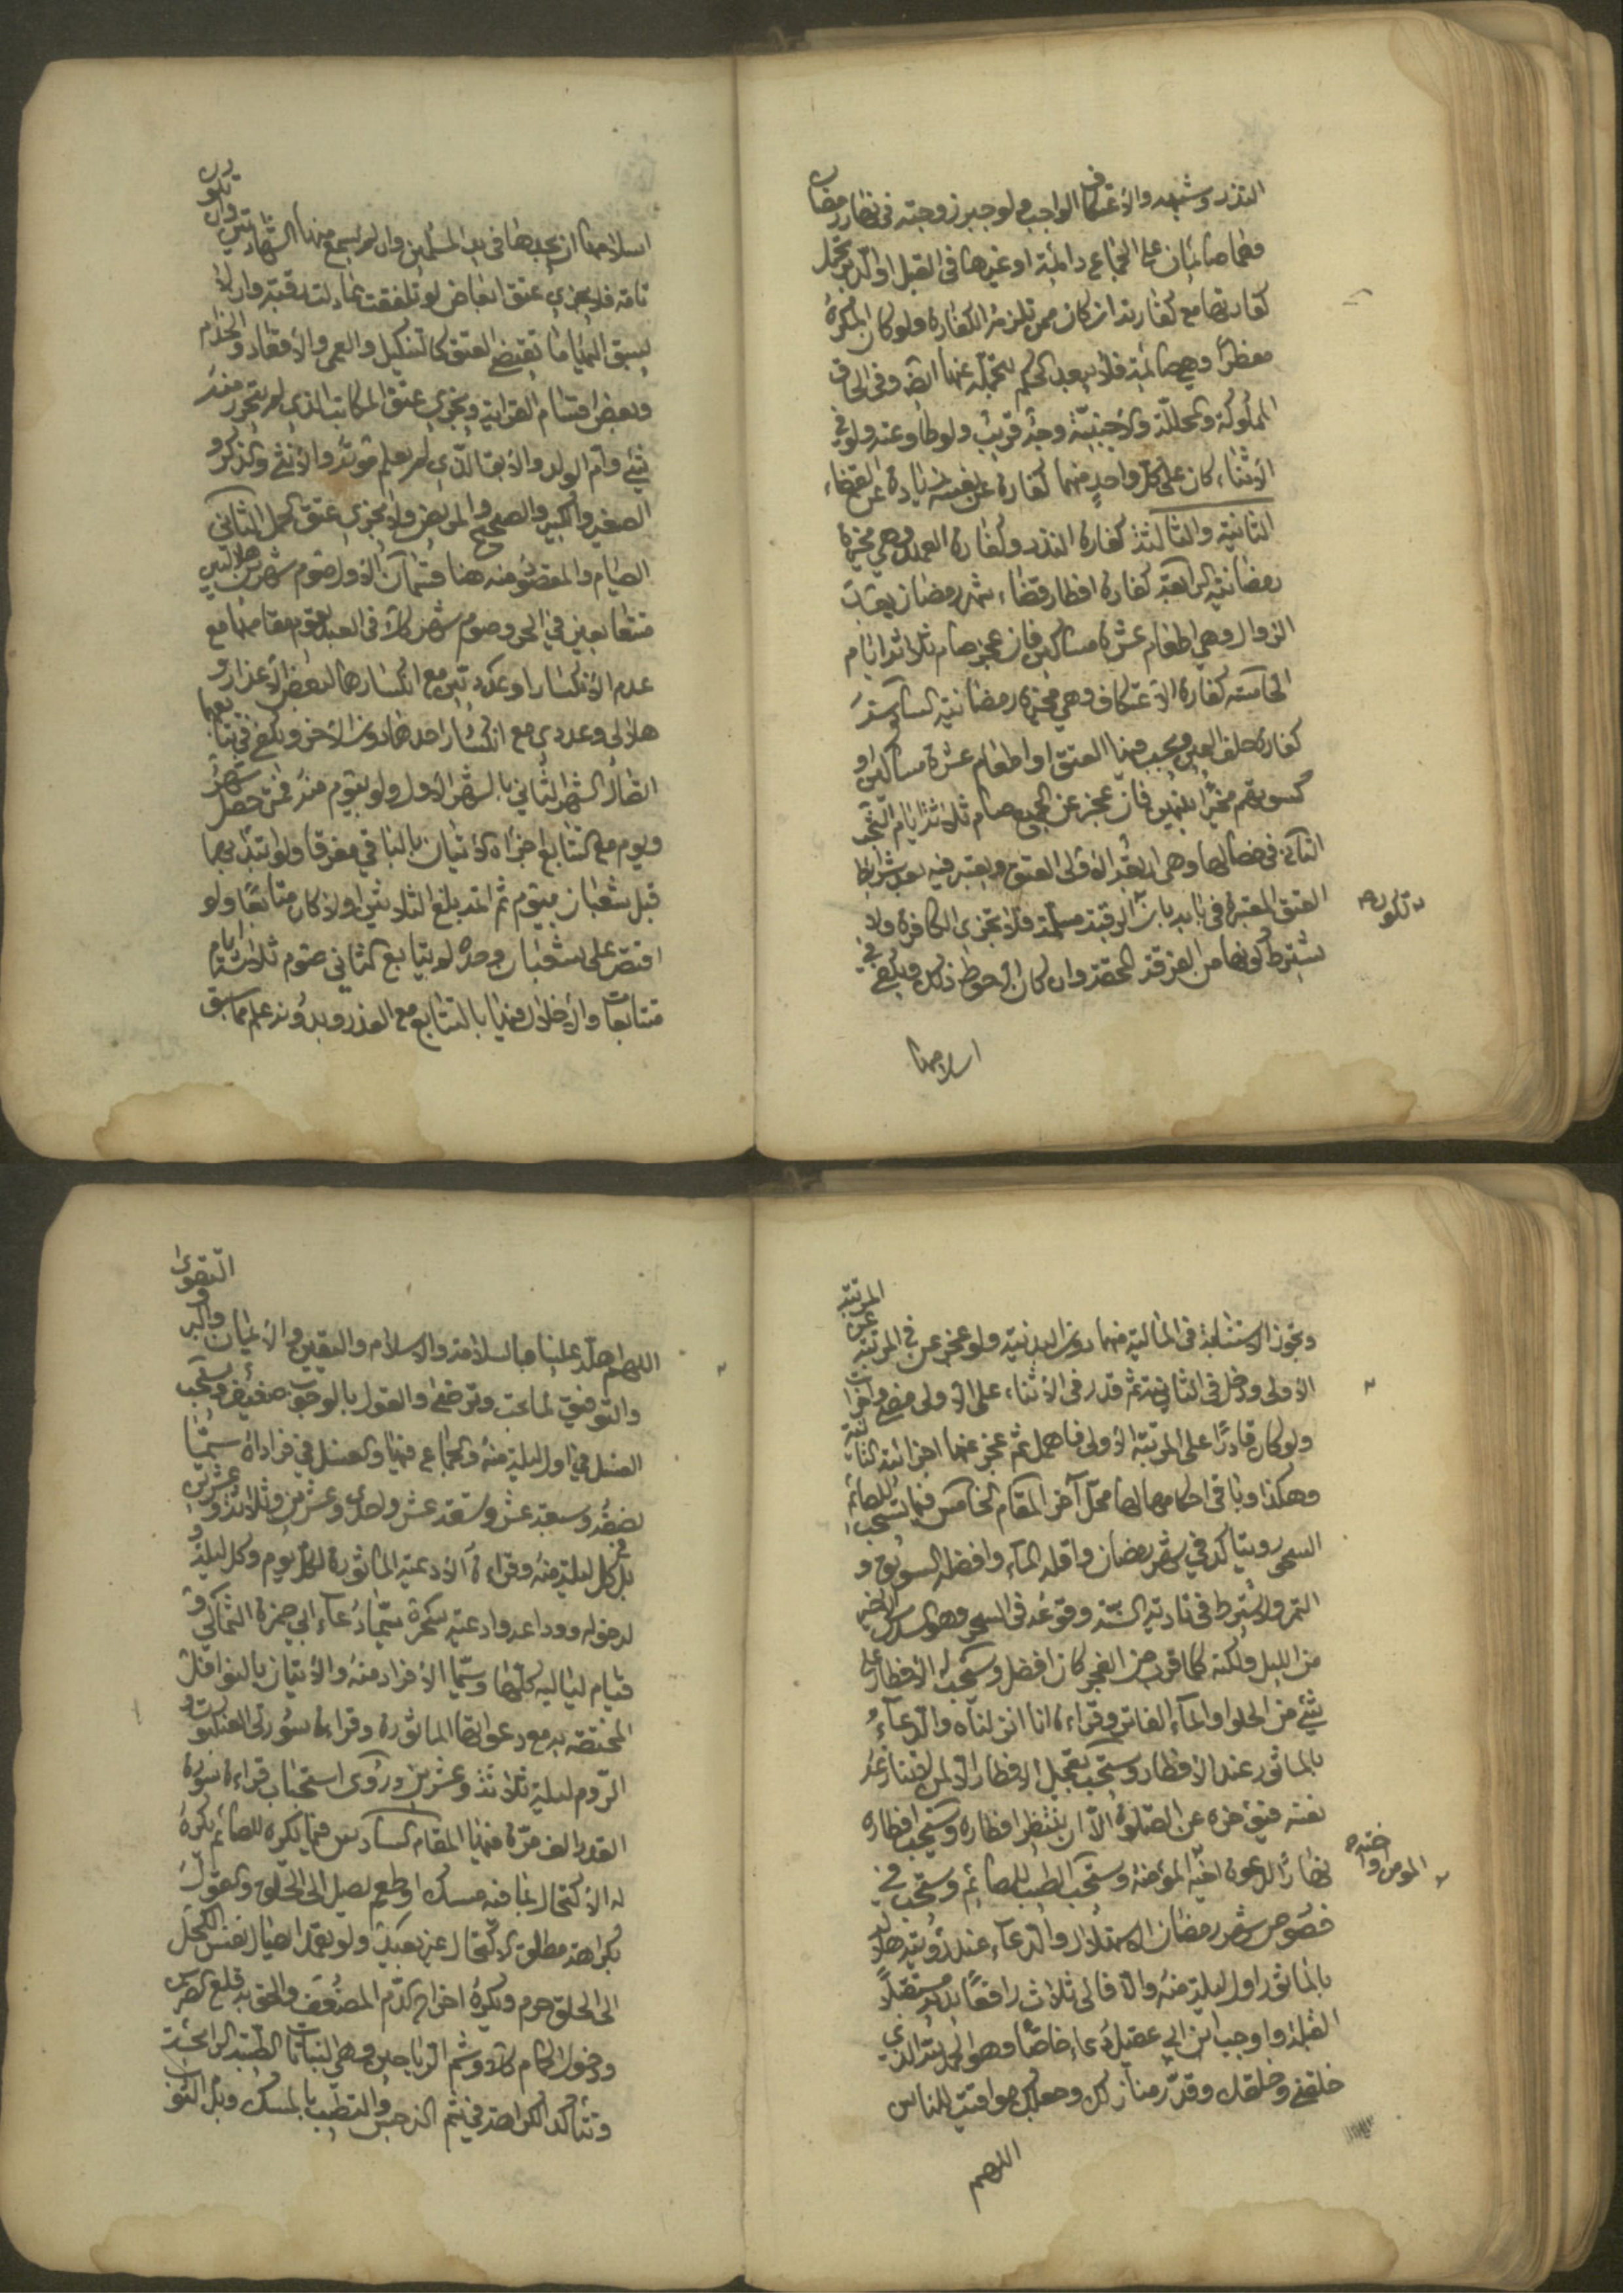 النذر وشبهه والاعتكاف الواجب ولو جبر زوجته في نهار رمضان
وهما صائمان على الجماع دائمة او غيرها في القبل او الدبر تحمل
كفارتها مع كفارته ان كان ممن تلزمه الكفارة ولو كان المكره
مفطرا وهي صائمة فلا يبعد الحكم بتحمله عنها ايضا وفي الحاق
المملوكة والمحللة والاجنبية وجه قريب ولو طاوعته ولو في
الاثناء كان على كل واحد منهما كفارة عن نفسه زيادة عن القضاء
الثانية والثالثة كفارة النذر وكفارة العهد وهي مخيرة
رمضانية الرابعة كفارة افطار قضاء شهر رمضان بعد
الزوال وهي اطعام عشرة مساكين فان عجز صام ثلاثة ايام
الخامسة كفارة الاعتكاف وهي مخيرة رمضانية السادسة
كفارة حلف اليمين ويجب فيها العتق او اطعام عشرة مساكين او
كسوتهم مخيرا بينهن فان عجز عن الجميع صام ثلاثة ايام البحث
الثاني في خصالها وهي اربعة الاولى العتق ويعتبر فيه بعد شرائط
العتق المعتبرة في بابه بان الرقبة مسلمة فلا تجزي الكافرة ولا
تكون
يشترط كونها من الفرقة المحقة وان كان الاحوط ذلك ويكفي في
اسلامها
اسلامها ان يجدها في يد المسلمين وان لم يسمع منها الشهادتين وان تكون
تامة فلا يجزي عتق ابعاض لو تلفقت عادلت رقبة وان لا
يسبق اليها ما يقتضي العتق كالتنكيل والعمى والاقعاد والجذام
وبعض اقسام القرابة ويجزي عتق المكاتب الذي لم يتحرر منه
شيء وام الولد والابق الذي لم يعلم موته والانثى والذكر و
الصغير والكبير والصحيح والمريض ولا يجزي عتق الحمل الثاني
الصيام والمقصود منه هنا قسمان الاول صوم شهرين هلاليين
متتابعين في الحر وصوم شهر في العبد يقوم مقامها مع
عدم الانكسار او عدديين مع انكسارهما لبعض الاعذار و
هلالي وعددي مع انكسار احدهما دون الاخر ويكفي في تتابعهما
اتصال الشهر الثاني بالشهر الاول ولو بيوم منه فمتى حصل شهر
ويوم مع التتابع اجزاه الاتيان بالباقي مفرقا ولو ابتدا بهما
قبل شعبان بيوم ثم اتم بلغ الثلاثين او لا كان متابعا ولو
اقتصر على شعبان وحده لم يتابع الثاني صوم ثلاثة ايام
متتابعات والاخلال فيها بالتتابع مع العذر وبدونه علم مما سبق
وتجوز الاستنابة في المالية منهما دون البدنية ولو عجز عن المرتبة
الاولى ودخل في الثانية ثم قدر في الاثناء على الاولى مضى واجزات
ولو كان قادرا على المرتبة الاولى فاهمل ثم عجز عنها اجزاته الثانية
وهكذا وباقي احكامها لها محل آخر المقام الخامس فيما يستحب للصائم
السحور ويتاكد في شهر رمضان واقله الماء وافضله السويق و
التمر ولا يشترط في تادية السنة وقوعه في السحر وهو السدس الاخير
من الليل ولكنه كلما قرب من الفجر كان افضل ويستحب له الافطار على
شيء من الحلواء او الماء الفاتر وقراءة انا انزلناه والدعاء
بالماثور عند الافطار ويستحب تعجيل الافطار الا لمن تنازعه
نفسه فيؤخره عن الصلوة الا ان ينتظر افطاره ويستحب افطاره
نهارا لدعوة اخيه المؤمن ويستحب الطيب للصائم ويستحب في
اخيه المومن
خصوص شهر رمضان الاستهلال والدعاء عند رؤيته هلالا
بالماثور اول ليلة منه والا فالى ثلاث رافعا يديه مستقبلا
القبلة واوجب ابن ابي عقيل دعاء خاصا وهو الحمد لله الذي
خلقني وخلقك وقدر منازلك وجعلك مواقيت للناس
اللهم
اللهم اهله علينا بالسلامة والاسلام واليقين والايمان والبر والتقوى
والتوفيق لما تحب وترضى والقول بالوجوب ضعيف ويستحب
الغسل في اول ليلة منه والجماع فيها والغسل في فراداه سيما
نصفه وسبعة عشر وتسعة عشر واحدى وعشرين وثلاثة وعشرين
بل في كل ليلة منه وقراءة الادعية الماثورة لكل يوم وكل ليلة و
لدخوله ووداعه وادعية سحره سيما دعاء ابي حمزة الثمالي و
قيام لياليه كلها وسيما الافراد منه والاتيان بالنوافل
المختصة به مع دعواتها الماثورة وقراءة سورتي العنكبوت و
الروم ليلة ثلاثة وعشرين وروى استحباب قراءة سورة
القدر الف مرة فيها المقام السادس فيما يكره للصائم يكره
له الاكتحال بما فيه مسك او طعم يصل الى الحلق والقول
بكراهة مطلق الاكتحال غير بعيد ولو تعمد ايصال نفس الكحل
الى الحلق حرم ويكره اخراج الدم المضعف والحق به قلع الضرس
ودخول الحمام كذلك وشم الرياحين وهي النباتات الطيبة الرائحة
وتتاكد الكراهة في شم النرجس والتطيب بالمسك وبل الثوب